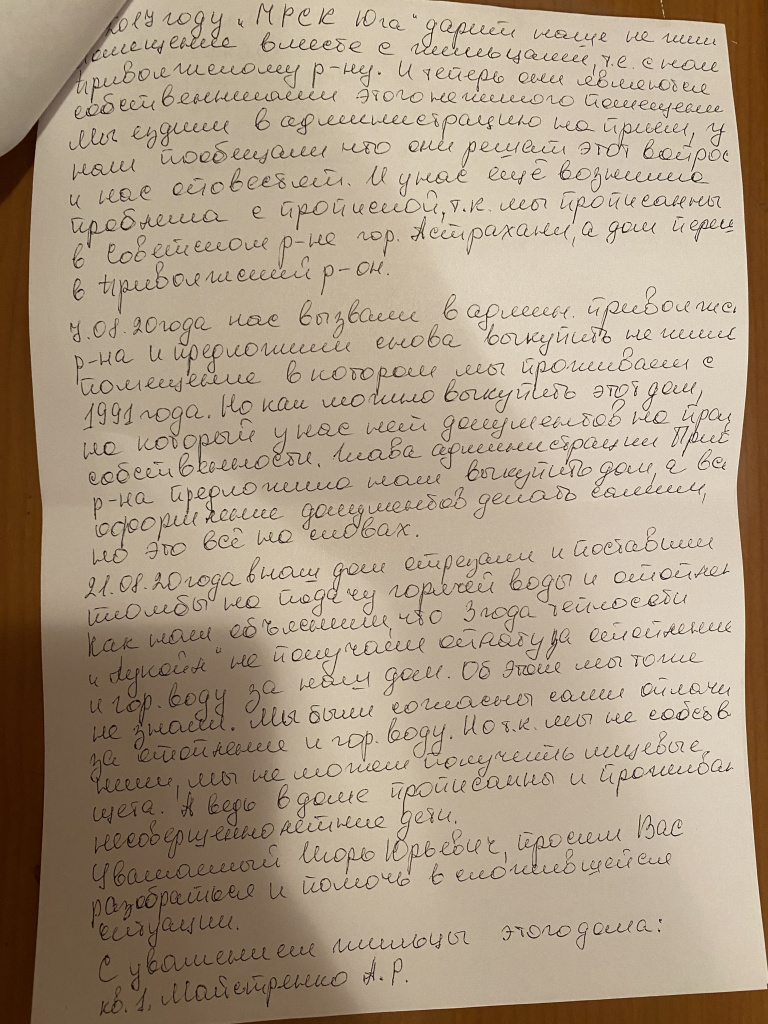 2017 году "МРСК Юга" дарит наше не жил
помещение вместе с жильцами, т.е. с нам
Приволжскому р-ну. И теперь они являются
собственниками этого нежилого помещени
Мы ездили в администрацию на прием, г
нам пообещали что они решат этот вопрос
и нас оповестят. И у нас ещё возникла
проблема с пропиской, т.к. мы прописанны
в Советском р-не гор. Астрахани, а дом переш
в Приволжский р-он.
7.08.20года нас вызвали в админ. приволжс
р-на и предложили снова выкупить не жил
помещение в котором мы проживаем с
1991 года. Но как можно выкупить этот дом,
на который у нас нет документов на прав
собственности. Глава администрации Прив
р-на предложила нам выкупить дом, а все
оформление документов делать самим,
но это всё на словах.
21.08.20года в наш дом отрезали и поставили
пломбы на подачу горячей воды и отоплен
Как нам объяснили, что 3 года теплосети
и "Лукойл" не получают оплату за отопление
и гор. воду за наш дом. Об этом мы тоже
не знали. Мы были согласны сами оплачи
за отопление и гор. воду. Но т.к. мы не собств
ники, мы не можем получить лицевые
щета. А ведь в доме прописанны и прожива
несовершеннолетние дети.
Уважаемый Игорь Юрьевич, просим Вас
разобраться и помочь в сложившейся
ситуации.
С уважением жильцы этого дома:
кв. 1, Майстренко А.Р.